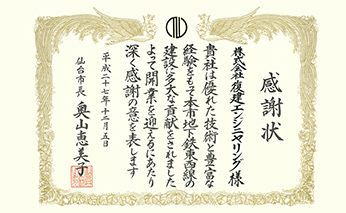 感謝状
株式会社復建エンジニヤリング様
貴社は優れた技術と豊富な
経験をもって本市地下鉄東西線の
建設に多大な貢献をされました
よって開業を迎えるにあたり
深く感謝の意を表します
平成二十七年十二月五日
仙台市長 奥山恵美子